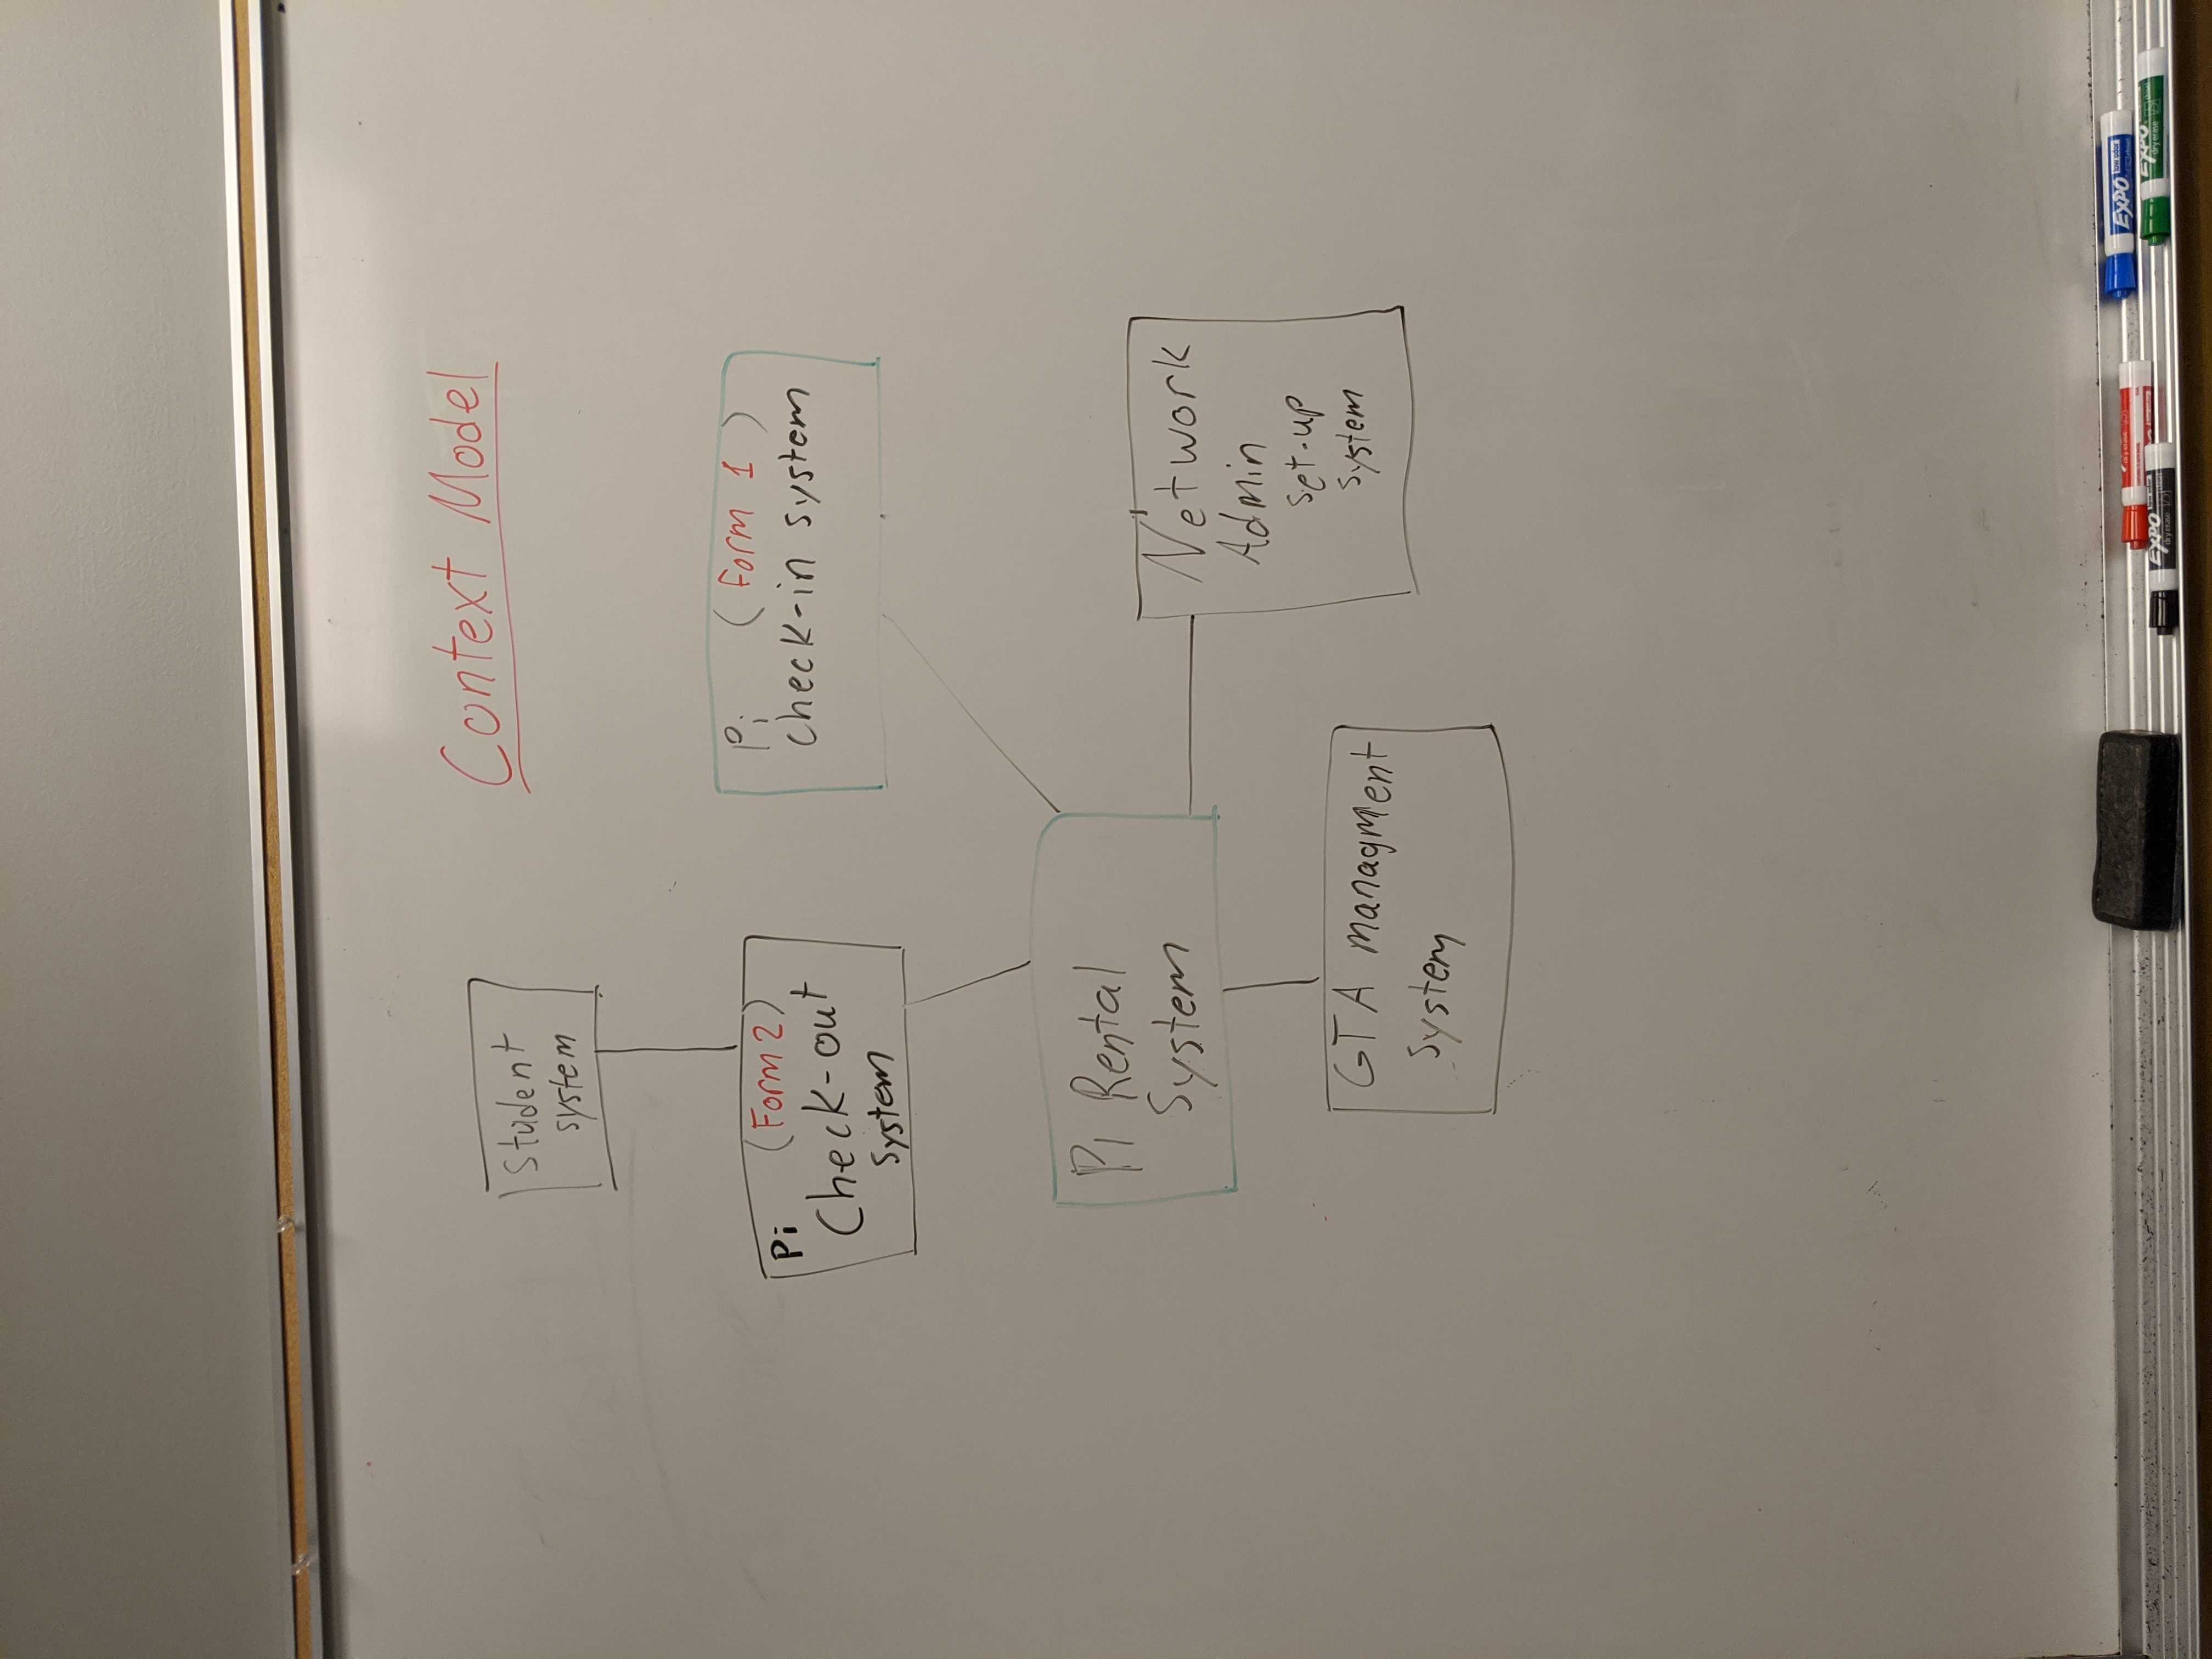 Context Model
Student
system
Pi (Form 2)
Check-out
system
Pi (Form 1)
check-in system
Pi Rental
System
Network
Admin
set-up
system
GTA managment
system
EXPO low odor
dry erase
EXPO low odor
dry erase
EXPO
dry erase